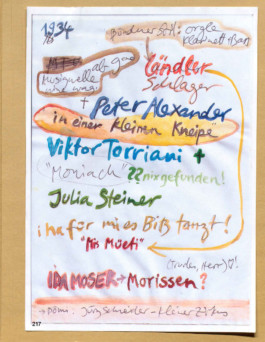 1934
Bündner Stil: örgle
Klarinett + Bass
Musignelle
ländler
Schlager
+ Peter Alexander
"in einer kleinen Kneipe"
Viktor Torriani +
"Moniach" ?? nix gefunden!
Julia Steiner
i ha für mi es Biß tanzt!
"Mis Müeti"
(Trudes, Herr)!
IDA MOSER → Morissen?
→ Domi: Jürg Schneider - kleiner Zirkus
217